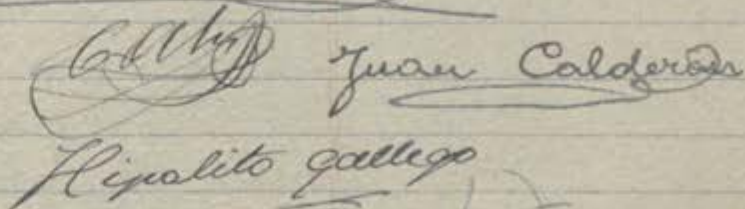 Juan Calderón
Hipolito gallego